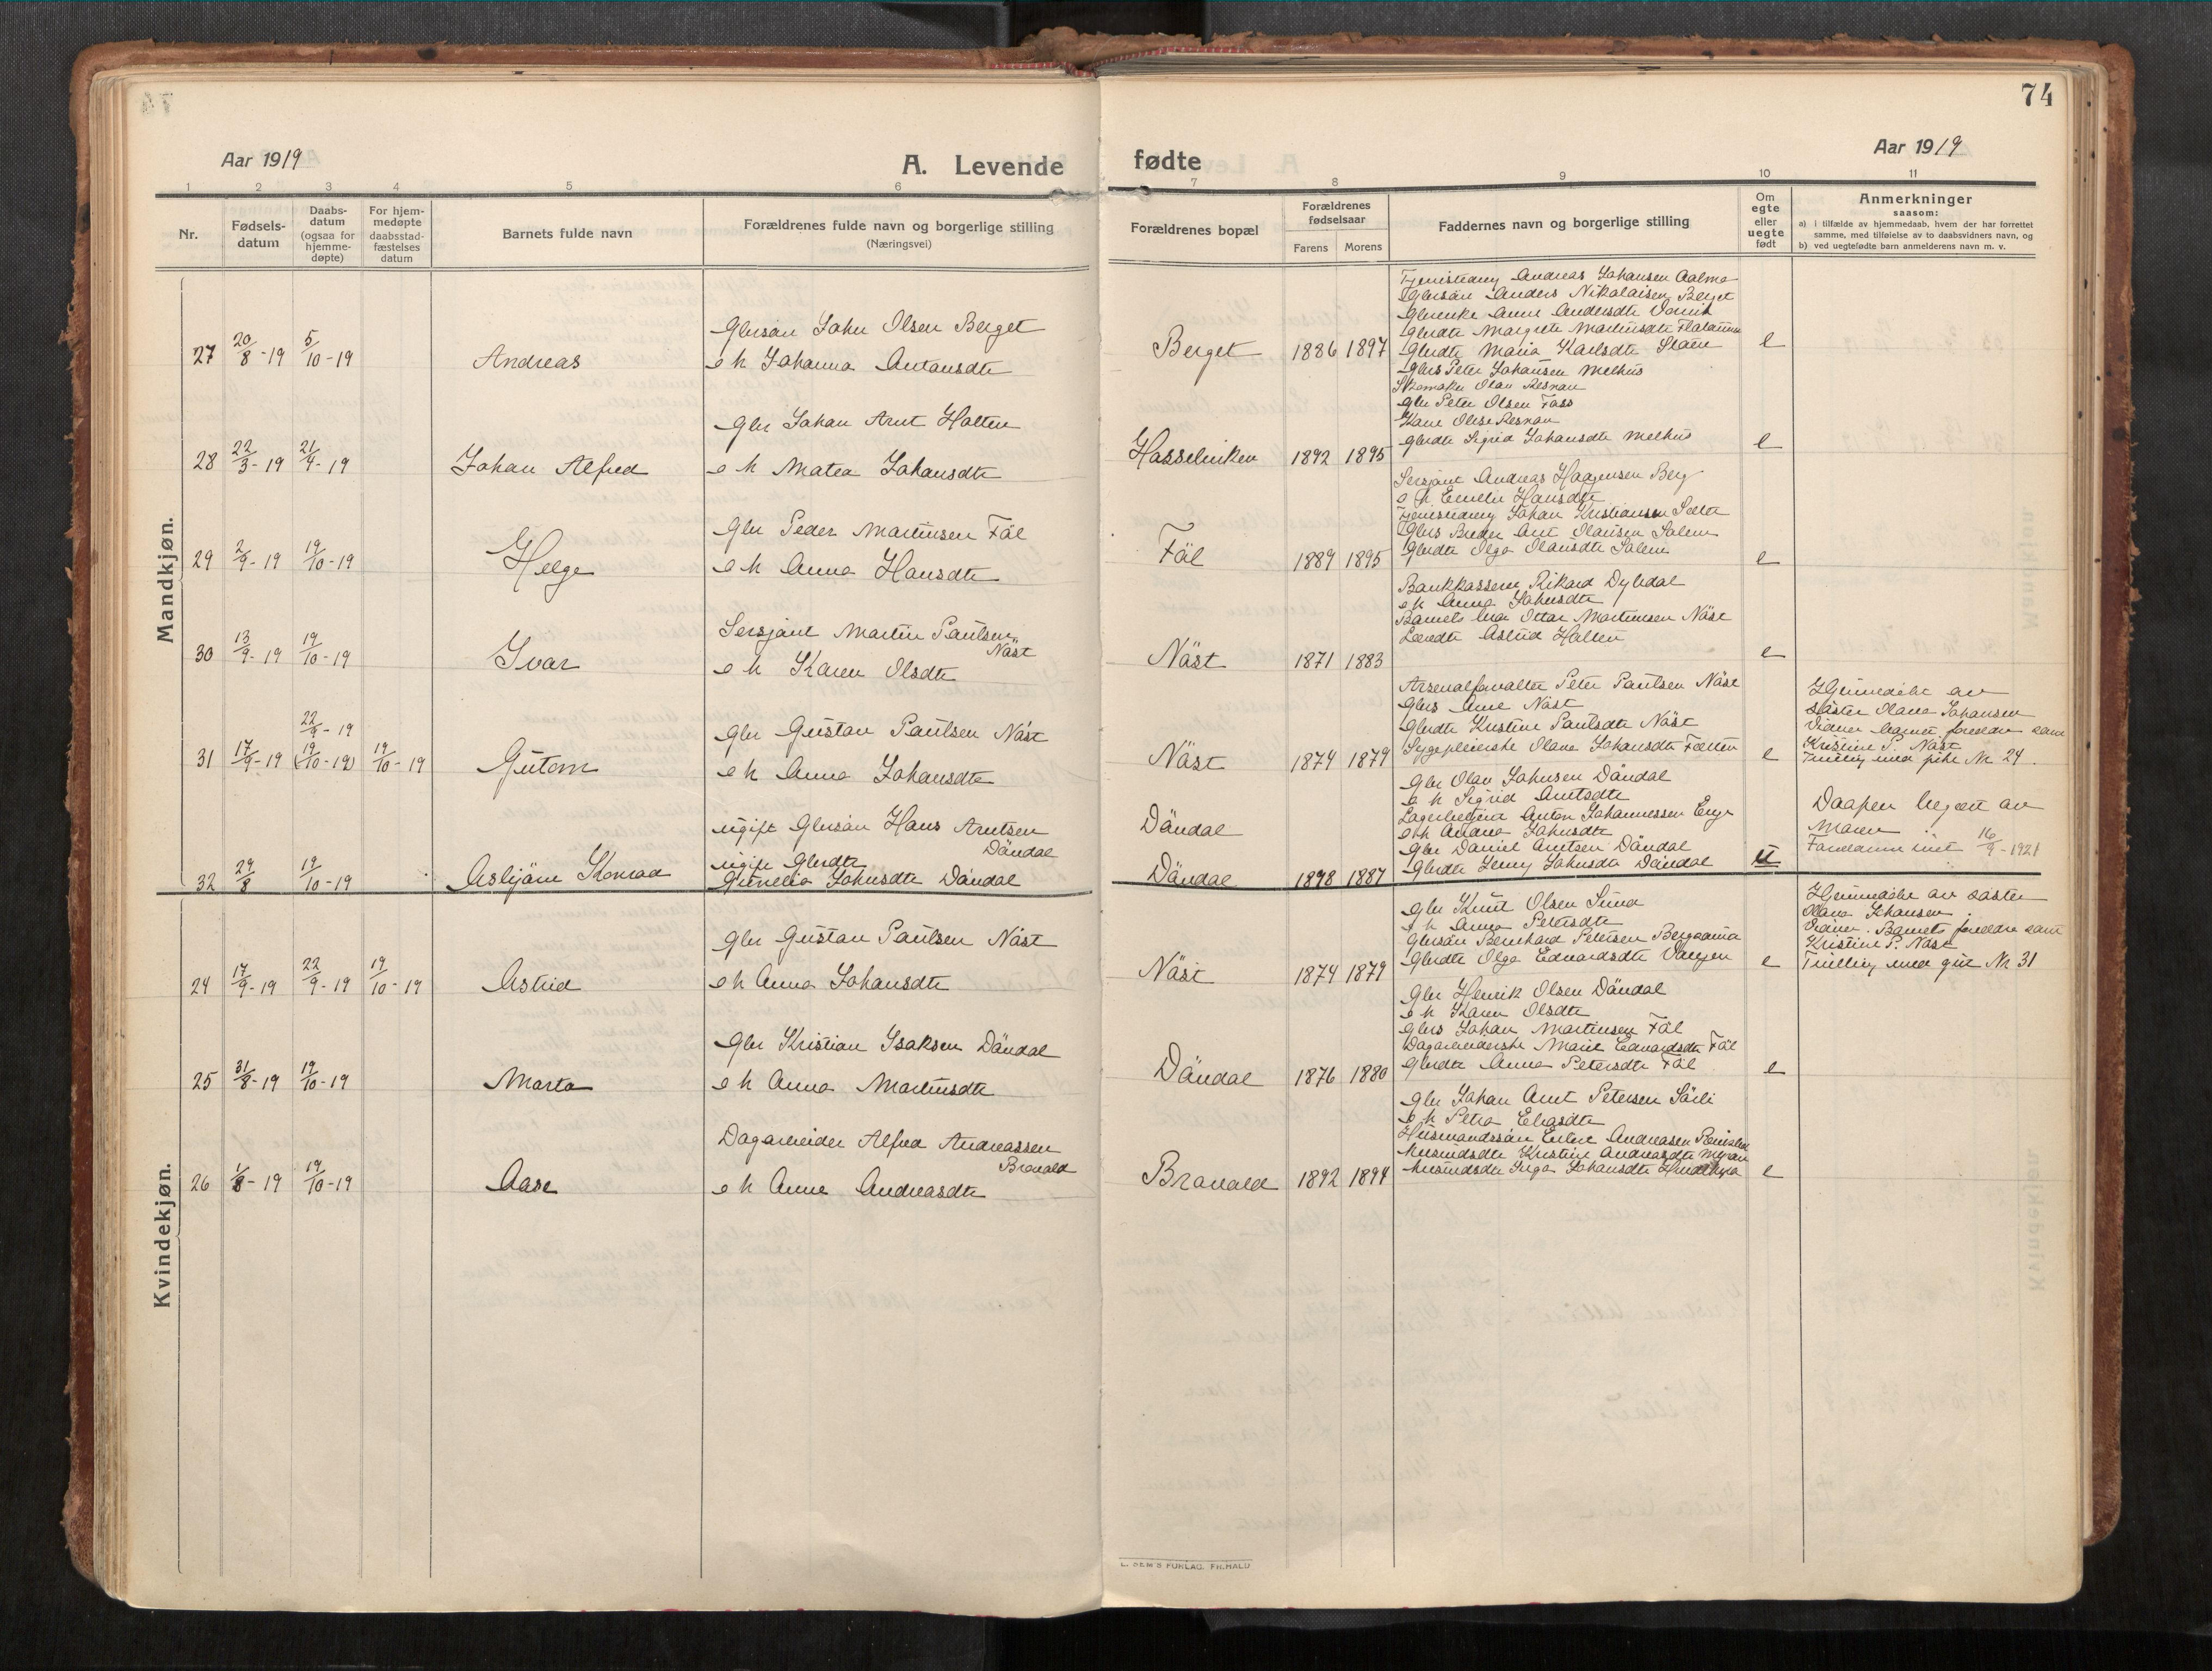 74
Aar 1919
A. Levende fødte
Aar 1919
1 2 3 4 5 6 7 8 9 10 11
Nr.
Fødsels-
datum
Daabs-
datum
(ogsaa for
hjemme-
døpte)
For hjem-
medøpte
daabsstad-
fæstelses
datum
Barnets fulde navn
Forældrenes fulde navn og borgerlige stilling
(Næringsvei)
Forældrenes bopæl
Forældrenes
fødselsaar
Farens Morens
Faddernes navn og borgerlige stilling
Om
egte
eller
uegte
født
Anmerkninger
saasom:
a) i tilfælde av hjemmedaab, hvem der har forrettet
samme, med tilføielse av to daabsvidners navn, og
b) ved uegtefødte barn anmelderens navn m. v.
Mandkjøn.
27 20/8-19 5/10-19 Andreas
Glsrsön John Olsen Berget
e h Johanna Antonsdtr
Berget 1886 1897
Andreas Johansen Aalmo
Anders Nikolaisen Berget
Anne Andersdtr
Margrete Martinsdtr
Maria Karlsdtr
e
28 22/3-19 21/4-19 Johan Alfred
Gbr Johan Arnt Holten
e h Matea Johansdtr
Hasselviken 1892 1895
Peter Johansen Melhus
Skomaker Olav Resnan
Gbr Peter Olsen Foss
Kone Olise Resnan
Gbrdtr Sigrid Johansdtr Melhus
e
29 2/9-19 19/10-19 Helge
Gbr Peder Martinsen Fäl
e h Anna Hansdtr
Fäl 1889 1895
Sersjant Andreas Haagensen Berg
e h Emelie Hansdtr
Johan Kristiansen Selte
Arnt Olausen Salem
Gbrdtr Olga Olausdtr Salem
e
30 13/9-19 19/10-19 Ivar
Sersjant Martin Paulsen
Näst
e h Karen Olsdtr
Näst 1871 1883
Bankkasserer Rikard Dybdal
e h Anna Johnsdtr
Barnets bror Ottar Martinsen Näst
Astrid Holten
e
31 17/9-19 22/9-19 (19/10-19) 19/10-19 Gutorm
Gbr Gustav Paulsen Näst
e h Anna Johansdtr
Näst 1874 1879
Arsenalforvalter Peter Paulsen Näst
Näst
Gbrdtr Kristine Paulsdtr Näst
Sygepleierske Olava Johansdtr
e
Hjemmedöbt av
söster Olava Johansen
Vidner barnets foreldre samt
Kristine P. Näst
Tvilling med pike Nr 24.
32 29/8 19/10-19 Asbjörn Konrad
ugift Gbrsön Hans Arntsen
Däudal
ugift Gbrdtr
Gunelia Johnsdtr Däudal
Däudal
Däudal 1898 1887
Gbr Olav Johnsen Däudal
e h Sigrid Arntsdtr
Anton Johannessen Enge
e h Johnsdtr
Gbr Daniel Arntsen Däudal
Gbrdtr Jenny Johnsdtr Däudal
u
Daapen begjert av
Moren
16/9-1921
Kvindekjøn.
24 17/9-19 22/9-19 19/10-19 Astrid
Gbr Gustav Paulsen Näst
e h Anna Johansdtr
Näst 1874 1879
Gbr Knut Olsen Sund
e h Anna Petersdtr
Gbrsön Bernhard Petersen
Gbrdtr Olga Edvardsdtr
e
Hjemmedöbt av söster
Olava Johansen.
Vidner. Barnets foreldre samt
Kristine P. Näst
Tvilling med gut Nr 31
25 31/8-19 19/10-19 Marta
Gbr Kristian Isaksen Däudal
e h Anna Martinsdtr
Däudal 1876 1880
Gbr Henrik Olsen Däudal
e h Karen Olsdtr
Gbrs Johan Martinsen Fäl
Dagarbeiderske Marie Edvardsdtr Fäl
Gbrdtr Anna Petersdtr Fäl
e
26 1/8-19 19/10-19 Aase
Dagarbeider Alfred Andreassen
Bravald
e h Anne Andreasdtr
Bravald 1892 1894
Gbr Johan Arnt Petersen Särli
e h Petra Eliasdtr
Husmandssön Andreasen
Kristine Andreasdtr Myran
Inga Johansdtr
e
E. SEM'S FORLAG, FR.HALD